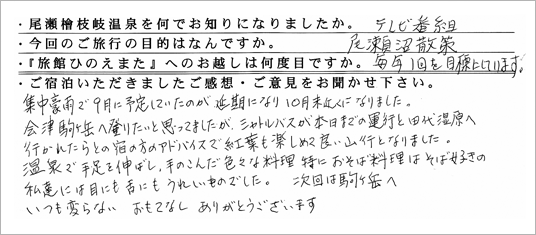 ・尾瀬檜枝岐温泉を何でお知りになりましたか。 テレビ番組
・今回のご旅行の目的はなんですか。 尾瀬沼散策
・『旅館ひのえまた』へのお越しは何度目ですか。 毎年1回を目標としています。
・ご宿泊いただきましたご感想・ご意見をお聞かせ下さい。
集中豪雨で9月に予定していたのが延期になり10月末近くになりました。
会津駒ヶ岳へ登りたいと思ってましたが、シャトルバスが本日までの運行と田代湿原へ
行かれたらとの宿の方のアドバイスで紅葉も楽しめて良い山行となりました。
温泉で手足を伸ばし、手のこんだ色々な料理 特におそば料理はそば好きの
私達には目にも舌にもうれしいものでした。 次回は駒ヶ岳へ
いつも変らない おもてなし ありがとうございます